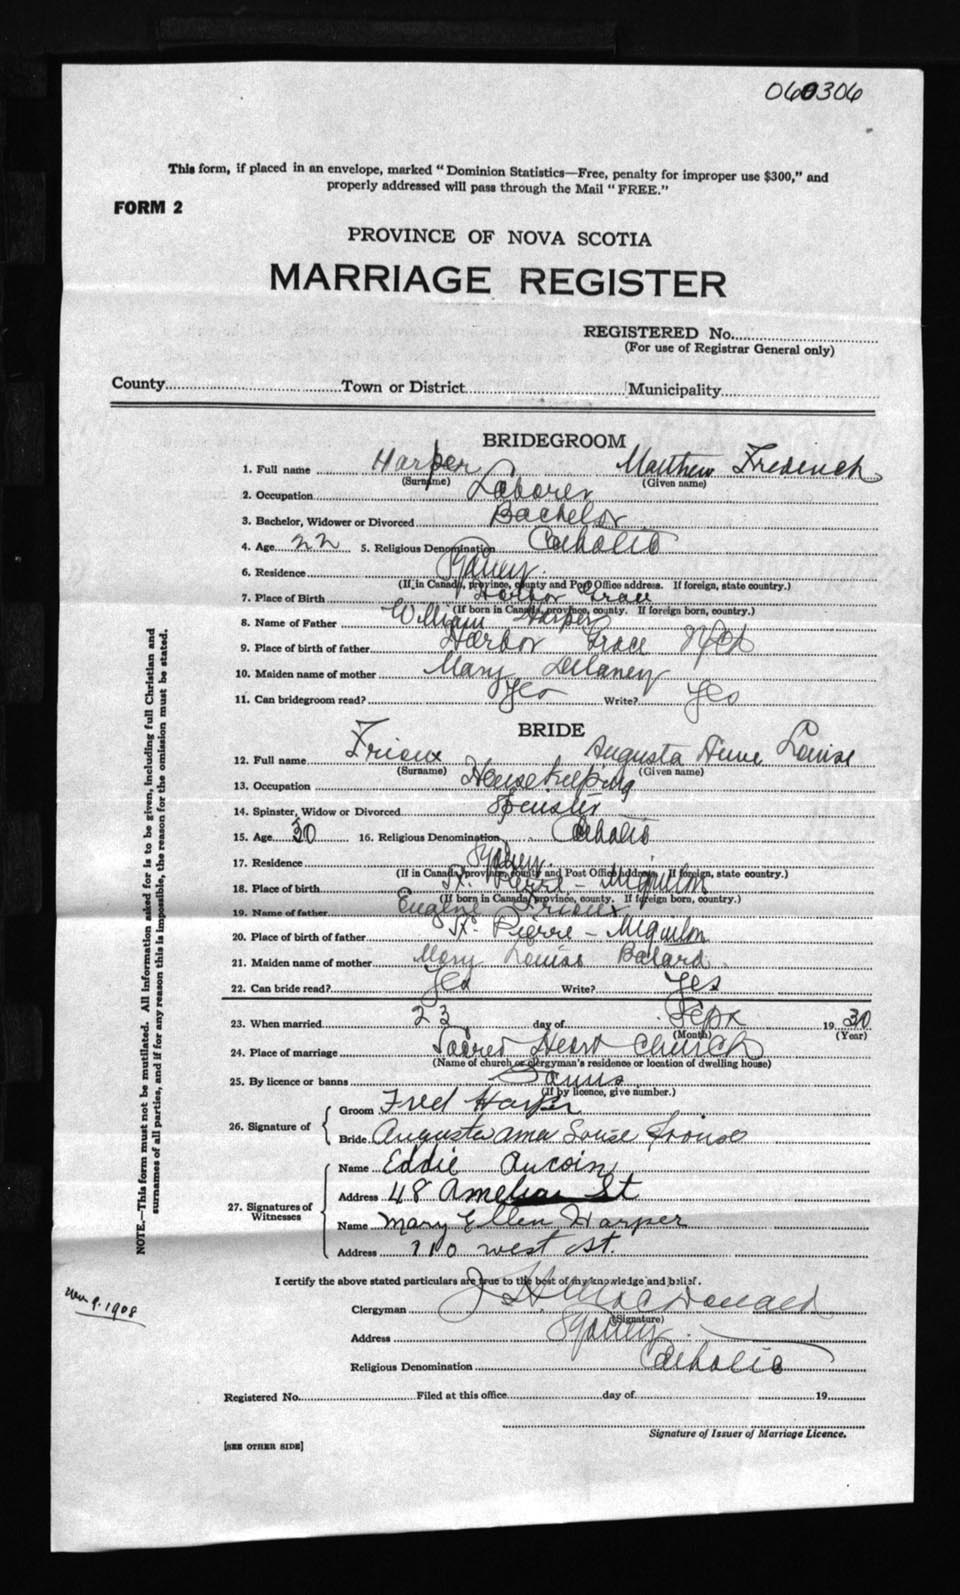 060306
This form, if placed in an envelope, marked "Dominion Statistics—Free, penalty for improper use $300," and
properly addressed will pass through the Mail "FREE."
FORM 2
PROVINCE OF NOVA SCOTIA
MARRIAGE REGISTER
REGISTERED No.
(For use of Registrar General only)
County Town or District Municipality
BRIDEGROOM
1. Full name Harper Matthew Frederick
(Surname) (Given name)
2. Occupation Laborer
3. Bachelor, Widower or Divorced Bachelor
4. Age 22 5. Religious Denomination Catholic
6. Residence Sydney
(If in Canada, province, county and Post Office address. If foreign, state country.)
7. Place of Birth Harbor Grace
(If born in Canada, province, county. If foreign born, country.)
8. Name of Father William Harper
9. Place of birth of father Harbor Grace Nfld
10. Maiden name of mother Mary Delaney
11. Can bridegroom read? Yes Write? Yes
BRIDE
12. Full name Frioux Augusta Anne Louise
(Surname) (Given name)
13. Occupation Housekeeping
14. Spinster, Widow or Divorced Spinster
15. Age 30 16. Religious Denomination Catholic
17. Residence Sydney
(If in Canada, province, county and Post Office address. If foreign, state country.)
18. Place of birth St. Pierre - Miquelon
(If born in Canada, province, county. If foreign born, country.)
19. Name of father Eugene Frioux
20. Place of birth of father St. Pierre - Miquelon
21. Maiden name of mother Mary Louise Balard
22. Can bride read? Yes Write? Yes
23. When married 23 day of Sept 19 30
(Month) (Year)
24. Place of marriage Sacred Heart Church
(Name of church or clergyman's residence or location of dwelling house)
25. By licence or banns Banns
(If by licence, give number.)
26. Signature of
Groom Fred Harper
Bride Augusta Louise
27. Signatures of Witnesses
Name Eddie Aucoin
Address 48 Amelia St
Name Mary Ellen Harper
Address 710 west st.
I certify the above stated particulars are true to the best of my knowledge and belief.
Clergyman J. H. MacDonald
(Signature)
Address Sydney
Religious Denomination Catholic
Registered No. Filed at this office day of 19
Signature of Issuer of Marriage Licence.
[SEE OTHER SIDE]
NOTE.—This form must not be mutilated. All information asked for is to be given, including full Christian and
surnames of all parties, and if for any reason this is impossible, the reason for the omission must be stated.
9. 1908